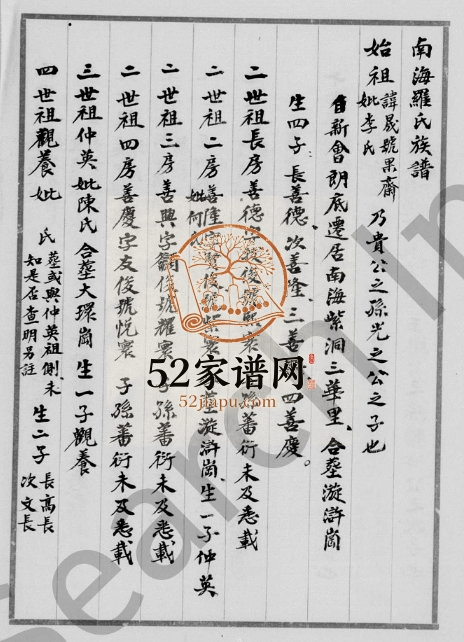 南海羅氏族譜
始祖 諱晟號果齋 妣李氏 乃貴公之孫光之公之子也
自新會朗底遷居南海紫洞三華里、合塟漩滸崗
生四子、長善德、次善隆、三善 四善慶。
二世祖長房善德字 俊號熙寰 蕃衍未及悉載
二世祖二房善隆字 俊號 寰 妣何 漩滸崗、生一子仲英
二世祖三房善興字 俊號耀寰 孫蕃衍未及悉載
二世祖四房善慶字友俊號悅寰 子孫蕃衍未及悉載
三世祖仲英妣陳氏 合塟大環崗 生一子觀養
四世祖觀養妣 氏 塟或與仲英祖側、未知是否查明另註 生二子 長高長 次文長
52家谱网
52jiapu.com
Search In